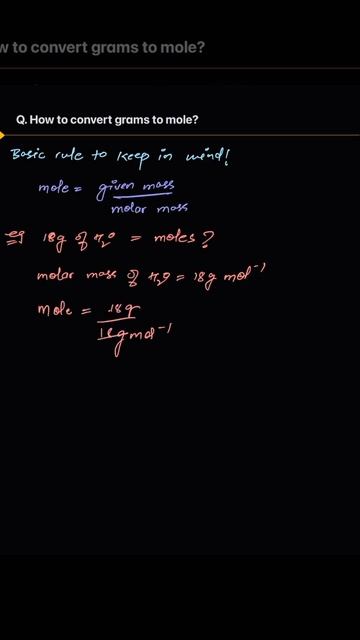 w to convert grams to mole?
Q. How to convert grams to mole?
Basic rule to keep in mind!
mole = given mass
molar mass
eg 18g of H₂O = moles?
molar mass of H₂O = 18g mol⁻¹
mole = 18g
18g mol⁻¹